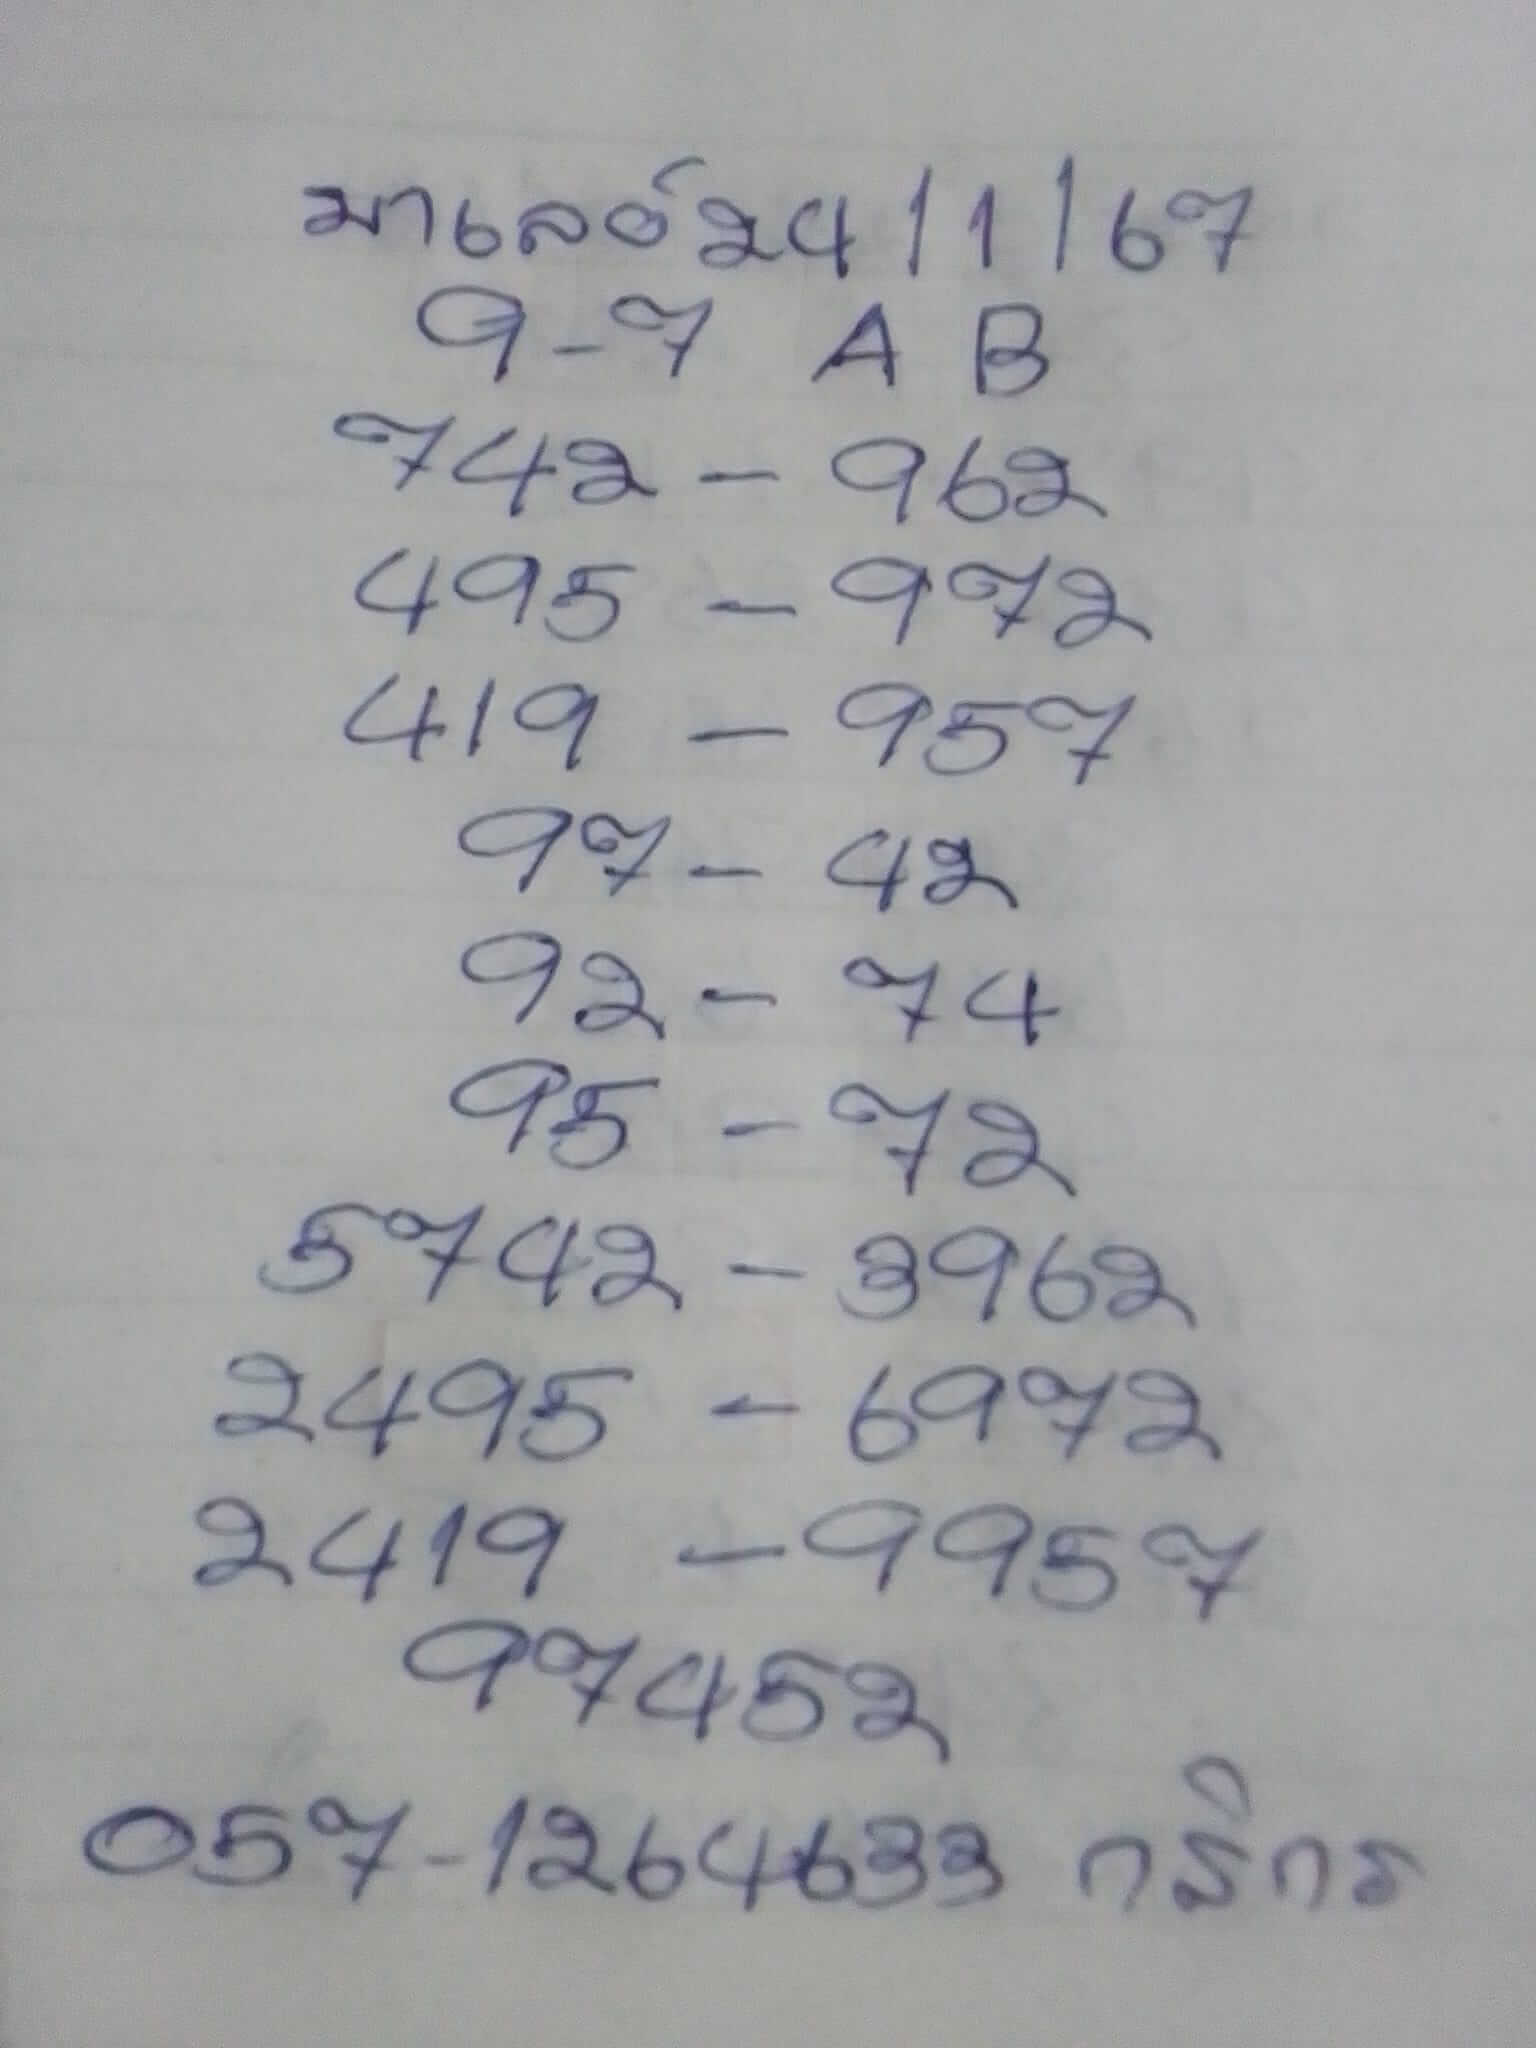 มาเลย์ 24/1/67
9-7 A B
742 - 962
495 - 972
419 - 957
97 - 42
92 - 74
95 - 72
5742 - 3962
2495 - 6972
2419 - 9957
97452
057-1264633 กสิกร